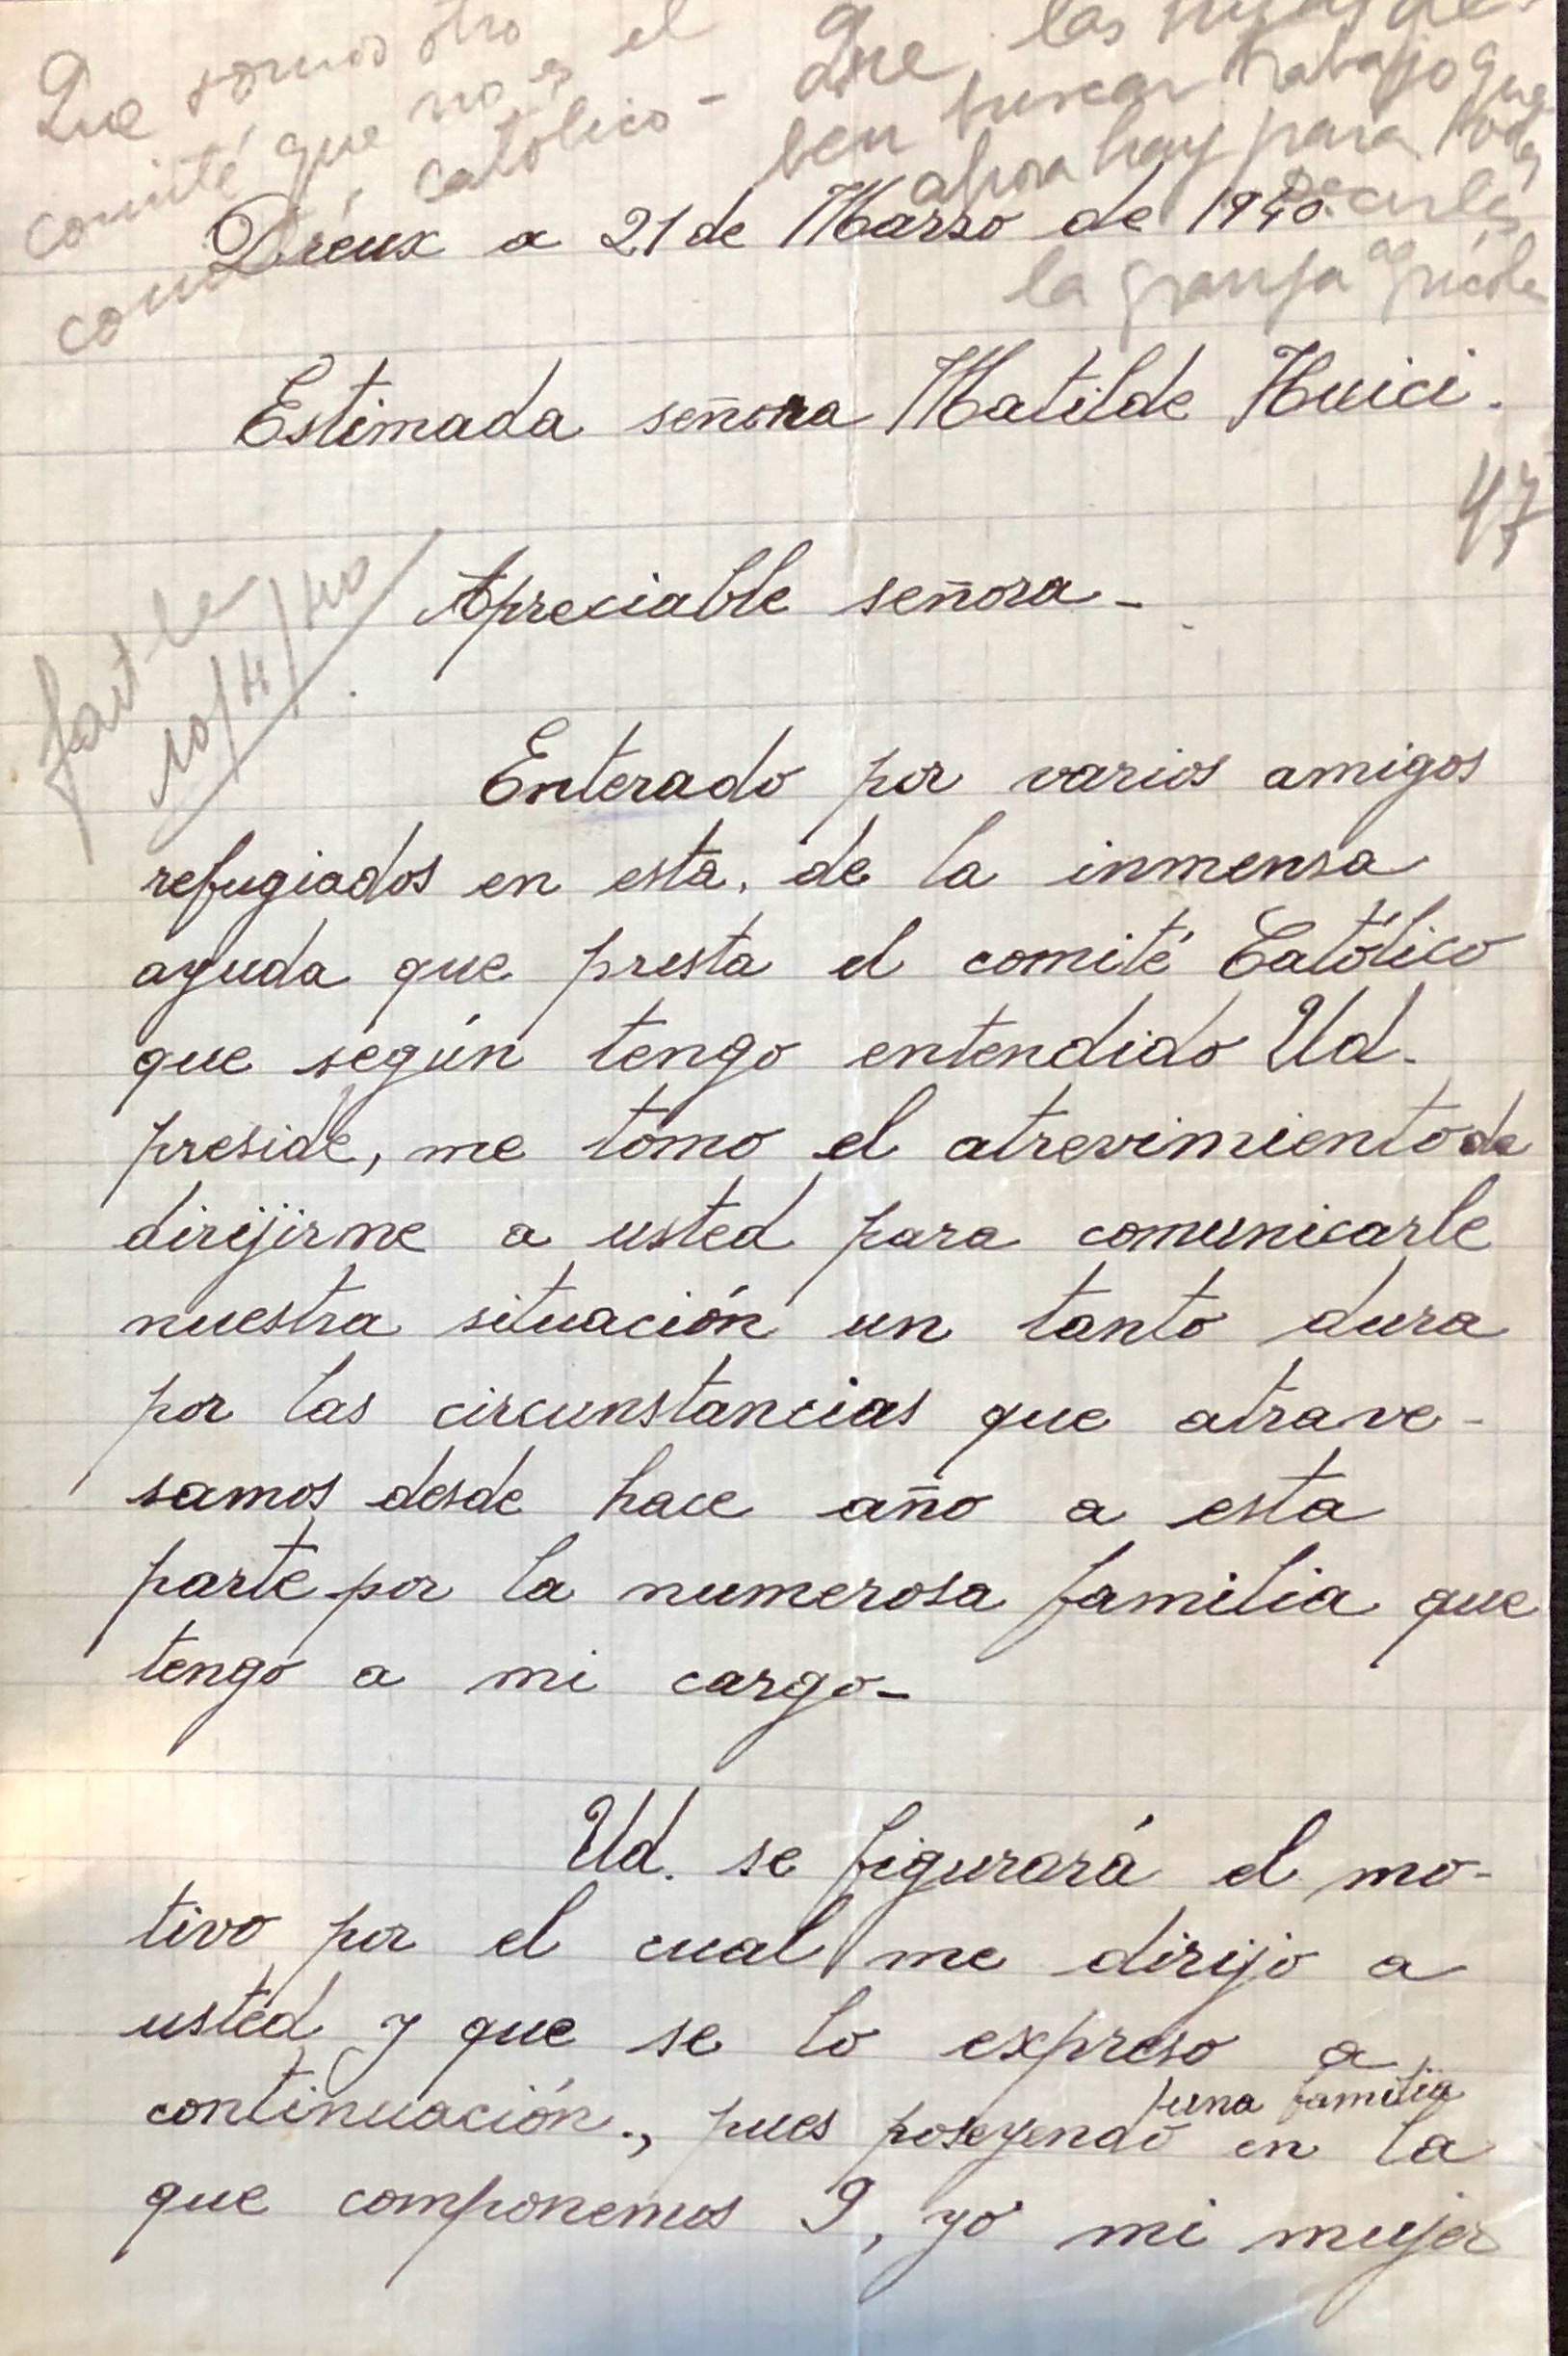 Que somos otro
comité que no es el
católico -
Que las hijas de-
ben buscar trabajo que
ahora hay para todas
Decirles
la granja agrícola
Dreux a 21 de Marzo de 1940
Estimada señora Matilde Huici.
47
fait le
10/4/40
Apreciable señora -
Enterado por varios amigos
refugiados en esta, de la inmensa
ayuda que presta el comité Católico
que según tengo entendido Ud.
preside, me tomo el atrevimiento de
dirijirme a usted para comunicarle
nuestra situación un tanto dura
por las circunstancias que atrave-
samos desde hace año a esta
parte por la numerosa familia que
tengo a mi cargo-
Ud. se figurará el mo-
tivo por el cual me dirijo a
usted y que se lo expreso a
continuación., pues poseyendo una familia en la
que componemos 9, yo mi mujer